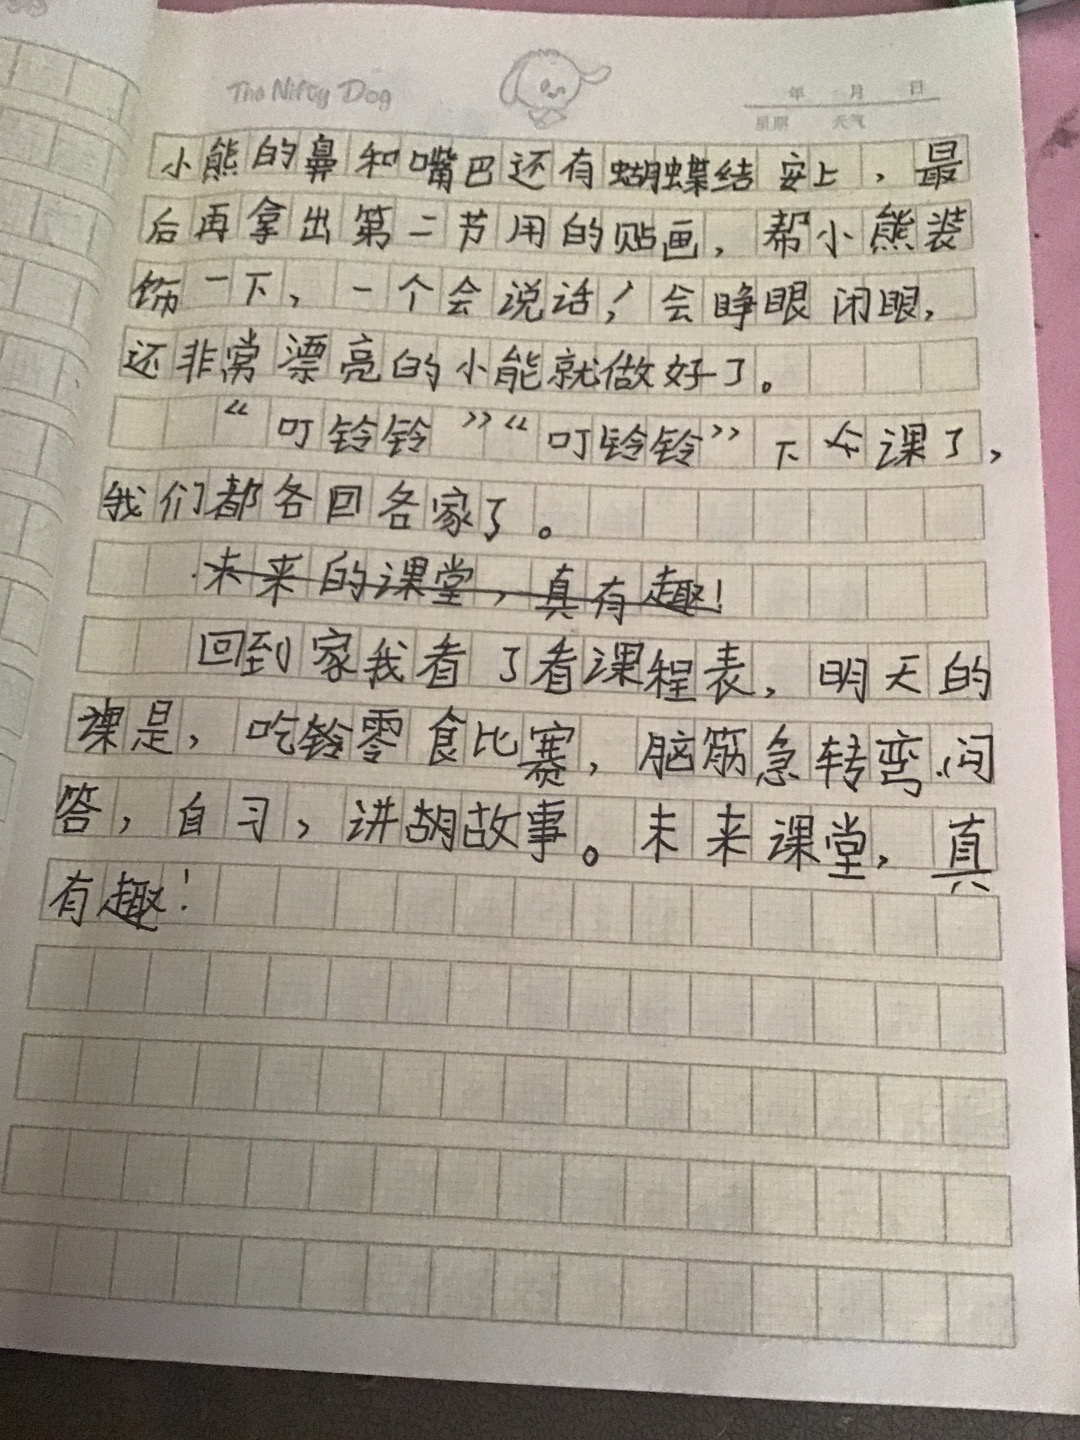 The Nifty Dog
年 月 日
星期 天气
小熊的鼻和嘴巴还有蝴蝶结安上，最
后再拿出第二节用的贴画，帮小熊装
饰一下，一个会说话！会睁眼闭眼，
还非常漂亮的小能就做好了。
“叮铃铃”“叮铃铃”下课了，
我们都各回各家了。
未来的课堂，真有趣！
回到家我看了看课程表，明天的
课是，吃铃零食比赛，脑筋急转弯问
答，自习，讲胡故事。未来课堂，真
有趣！